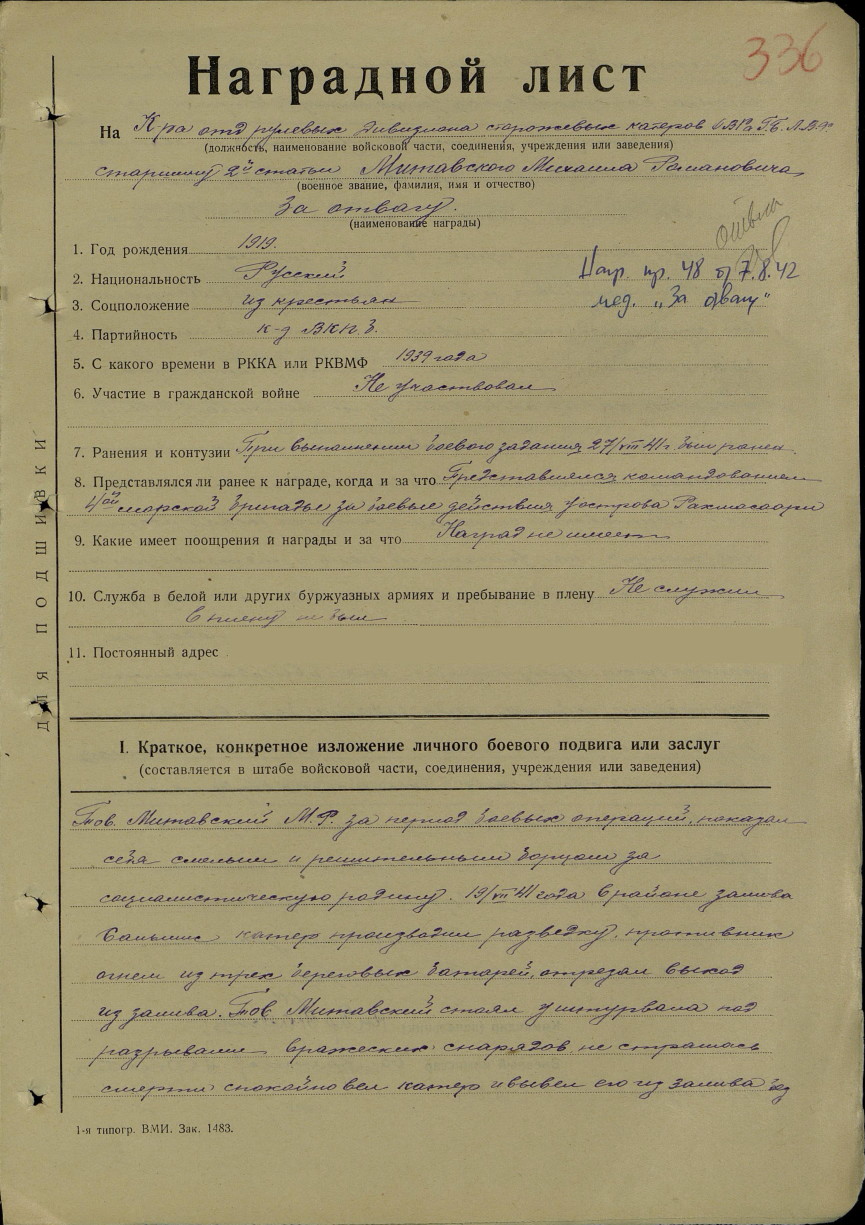 336
Наградной лист
На К-ра отд рулевых дивизиона сторожевых катеров ОВРа Г.Б. Л.В.Ф.
(должность, наименование войсковой части, соединения, учреждения или заведения)
старшину 2й статьи Митавского Михаила Романовича
(военное звание, фамилия, имя и отчество)
За отвагу.
(наименование награды)
1. Год рождения 1919.
2. Национальность Русский
Нагр. пр. 48 от 7.8.42
3. Соцположение из крестьян
мед. „За отвагу"
4. Партийность к-д ВКП б.
5. С какого времени в РККА или РКВМФ 1939 года
6. Участие в гражданской войне Не участвовал
7. Ранения и контузии При выполнении боевого задания 27/VIII 41 г. был ранен
8. Представлялся ли ранее к награде, когда и за что Представлялся командованием
4ой морской бригады за боевые действия у острова Рахмасаари
9. Какие имеет поощрения и награды и за что Наград не имеет
10. Служба в белой или других буржуазных армиях и пребывание в плену Не служил
в плену не был
11. Постоянный адрес
ДЛЯ ПОДШИВКИ
I. Краткое, конкретное изложение личного боевого подвига или заслуг
(составляется в штабе войсковой части, соединения, учреждения или заведения)
Тов. Митавский М.Р. за период боевых операций, показал
себя смелым и решительным борцом за
социалистическую родину. 19/VII 41 года в районе залива
Сальмис катер производил разведку, противник
огнем из трех береговых батарей, отрезал выход
из залива. Тов. Митавский стоял у штурвала под
разрывами вражеских снарядов не страшась
смерти спокойно вел катер и вывел его из залива без
1-я типогр. ВМИ. Зак. 1483.